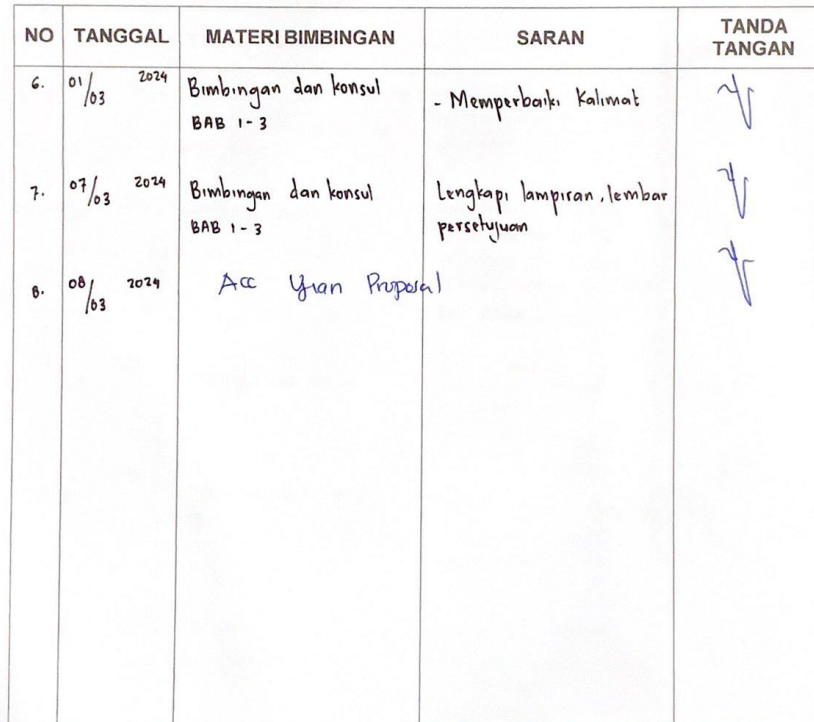 NO TANGGAL MATERI BIMBINGAN SARAN TANDA TANGAN
6. 01/03 2024 Bimbingan dan konsul - Memperbaiki Kalimat
BAB 1-3
7. 07/03 2024 Bimbingan dan konsul Lengkapi lampiran, lembar
BAB 1-3 persetujuan
8. 08/03 2024 Acc Ujian Proposal